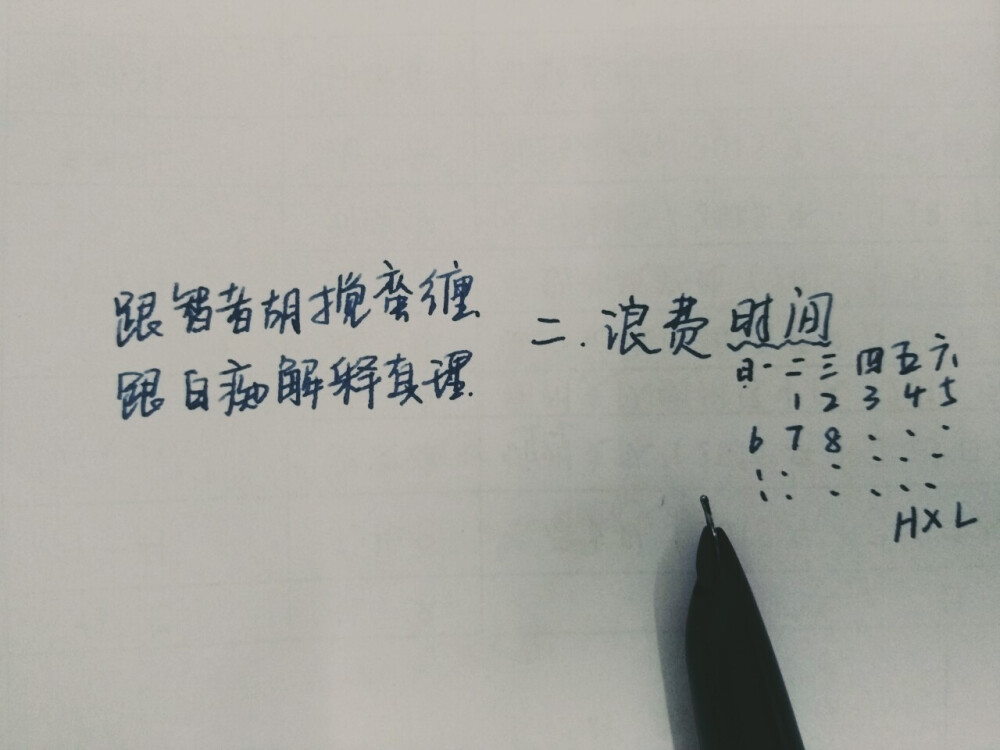 跟智者胡搅蛮缠
跟白痴解释真理.
二.浪费时间
日一二三四五六
1 2 3 4 5
6 7 8 . . .
HXL